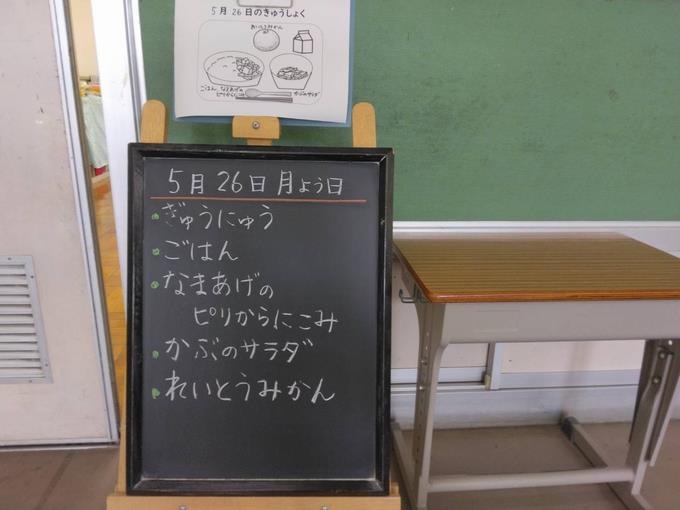 5月26日のきゅうしょく
れいとうみかん
ごはん なまあげの
ピリからにこみ
かぶのサラダ
5月26日月よう日
ぎゅうにゅう
ごはん
なまあげの
ピリからにこみ
かぶのサラダ
れいとうみかん